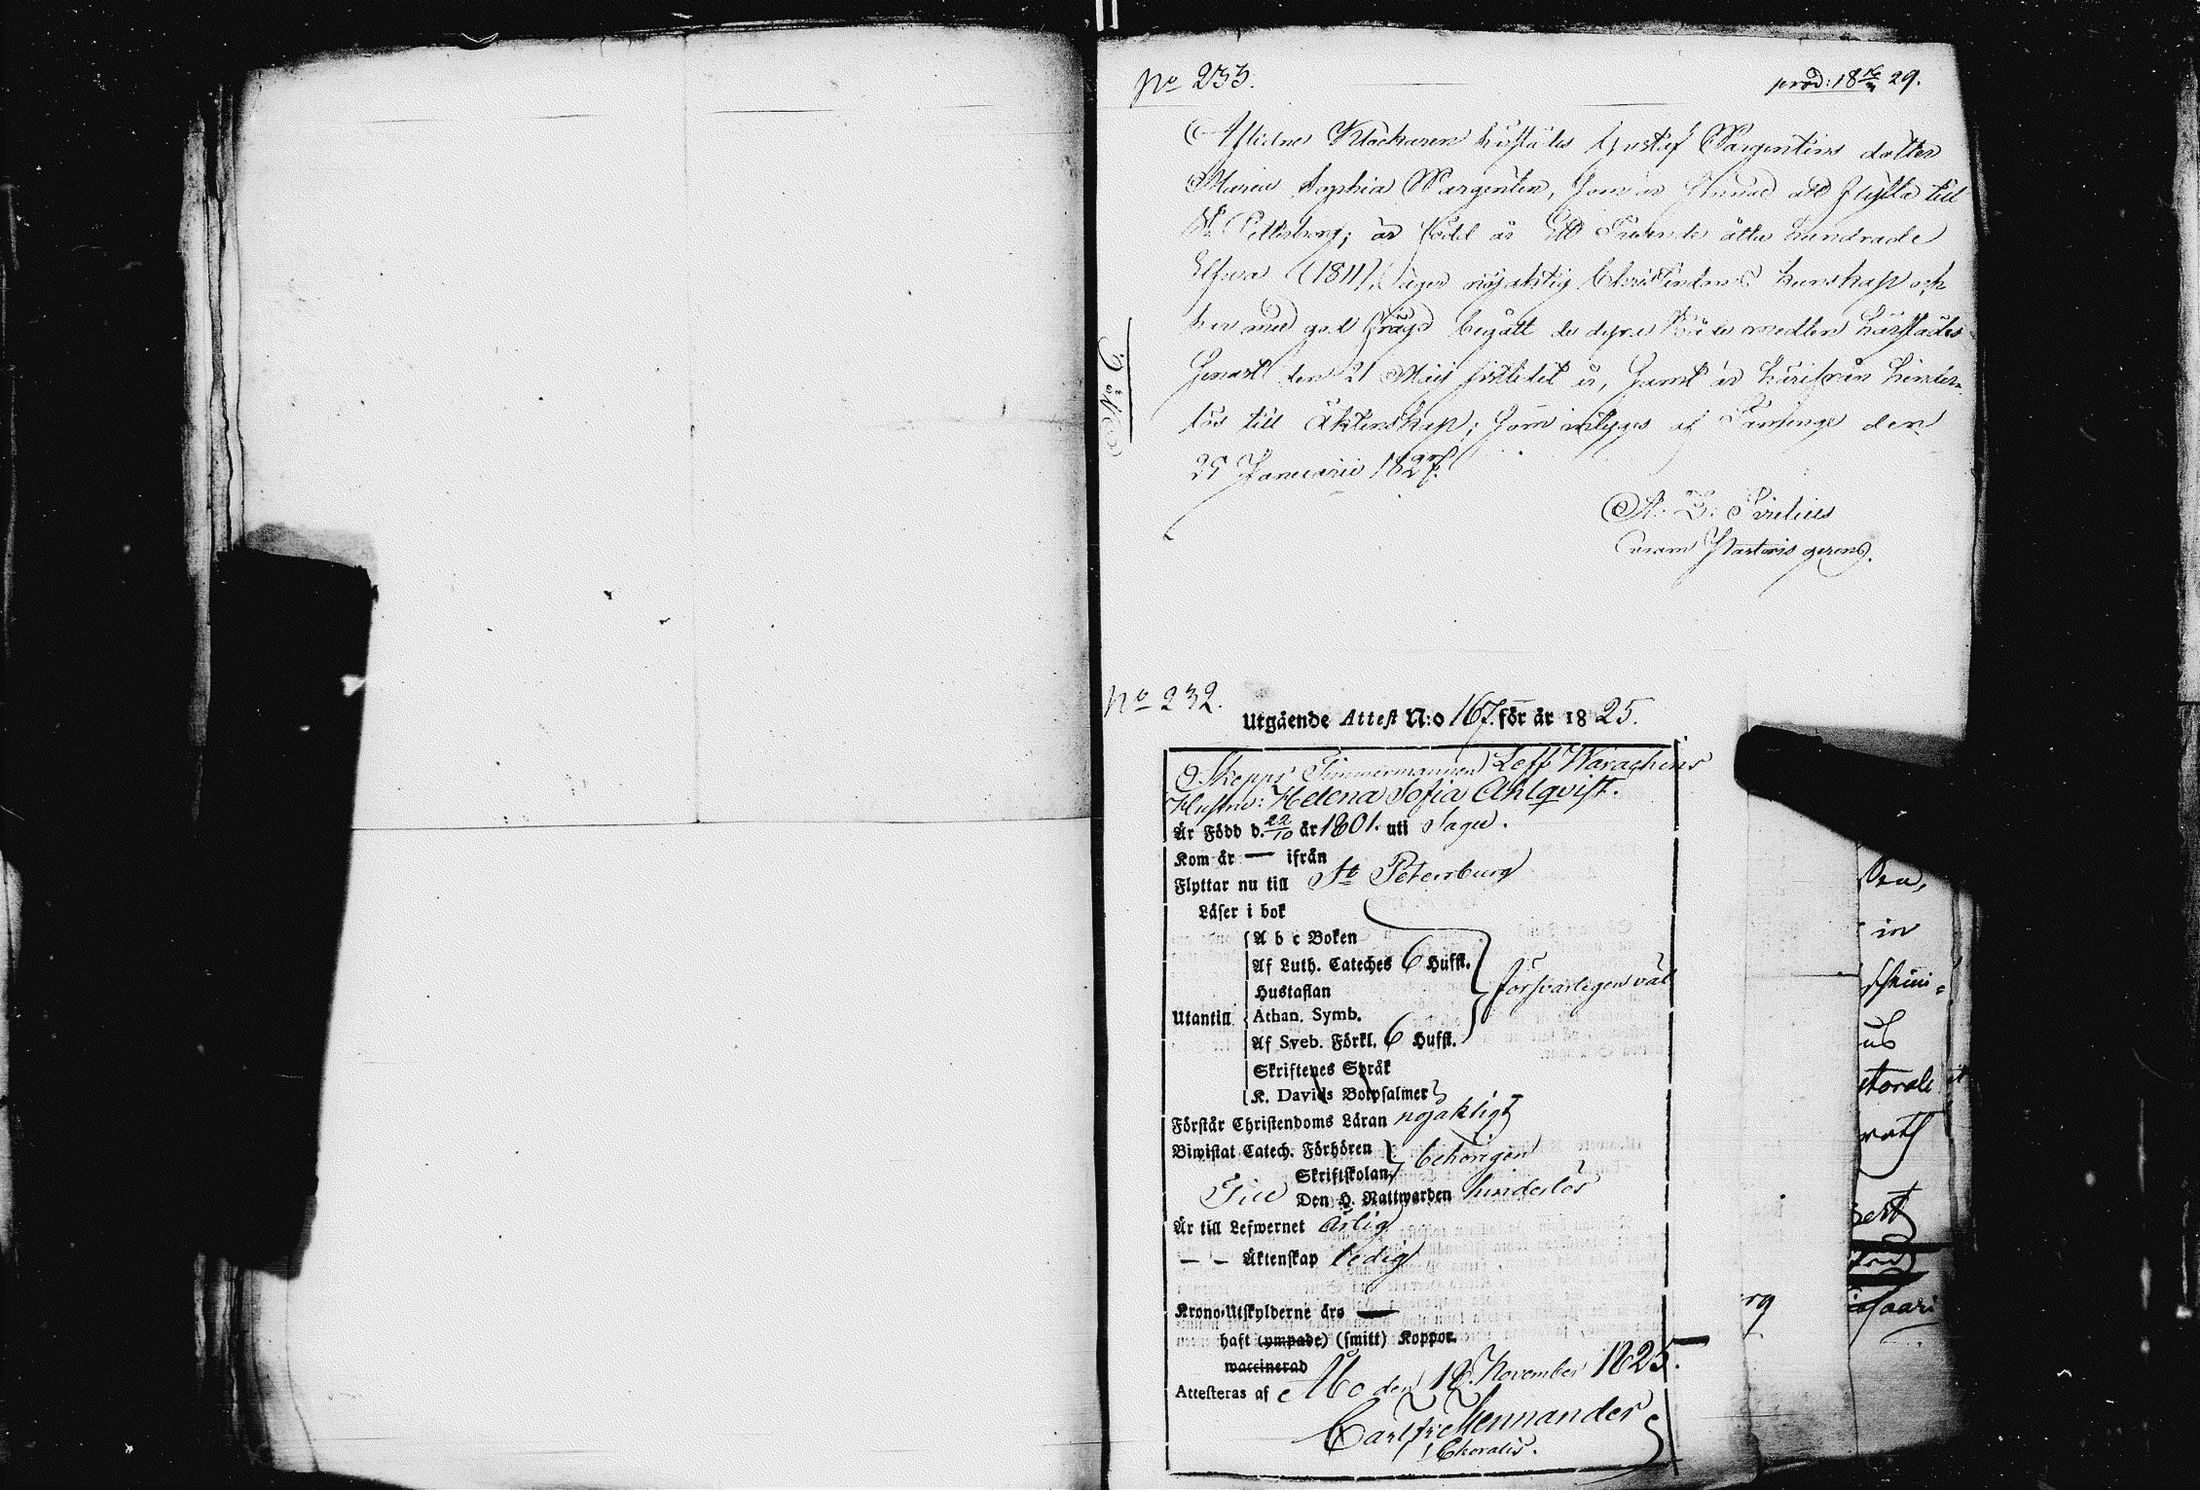 No 233.
prod: 18 29.
Aflidne Klockaren härstädes Gustaf Wargentins dotter
Maria Sophia Wargentin, som är sinnad att flytta till
St. Pettersburg; är född år Ett Tusende åtta hundrade
Elfva (1811), äger nöjaktig Christendoms kunskap och
har med god frägd begått de dyra Nåde medlen härstädes
senast den 21 Maii sistledet år, samt är härifrån hinder-
lös till Äktenskap; som intygas af den
25 Januarii 182
curam Pastoris gerens.
No 232.
Utgående Attest N:o 167. för år 1825.
Skepps Timmermannen
Hustru: Helena Sofia Ahlqvist.
Är Född d. 22/10 år 1801. uti Sagu.
Kom år — ifrån
Flyttar nu till St Petersburg
Läser i bok
A b c Boken
Af Luth. Cateches 6 Hufst.
Hustaflan
försvarligen väl
Utantill
Athan. Symb.
Af Sveb. Förkl. 6 Hufst.
Skriftenes Språk
K. Davids Botpsalmer
Förstår Christendoms Läran nöjaktigt
Biwistat Catech. Förhören
Skriftskolan
behörigen
Till Den H. Nattwarden hinderlös
Är till Lefwernet ärlig
— — Äktenskap ledig
Krono-Utskylderne äro —
haft (ympade) (smitt) Koppor.
waccinerad
Attesteras af Åbo den 18 November 1825.
Carl Fr. Mennander
in
us
rg